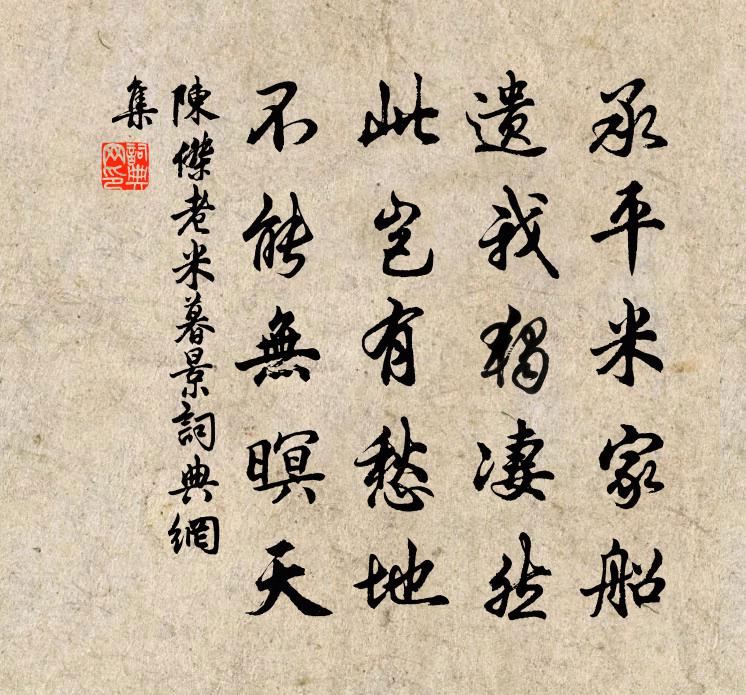 承平米家船
遗我獨凄然
此岂有愁地
不能無暝天
陳傑老米暮景詞典網
集
詞典
网印